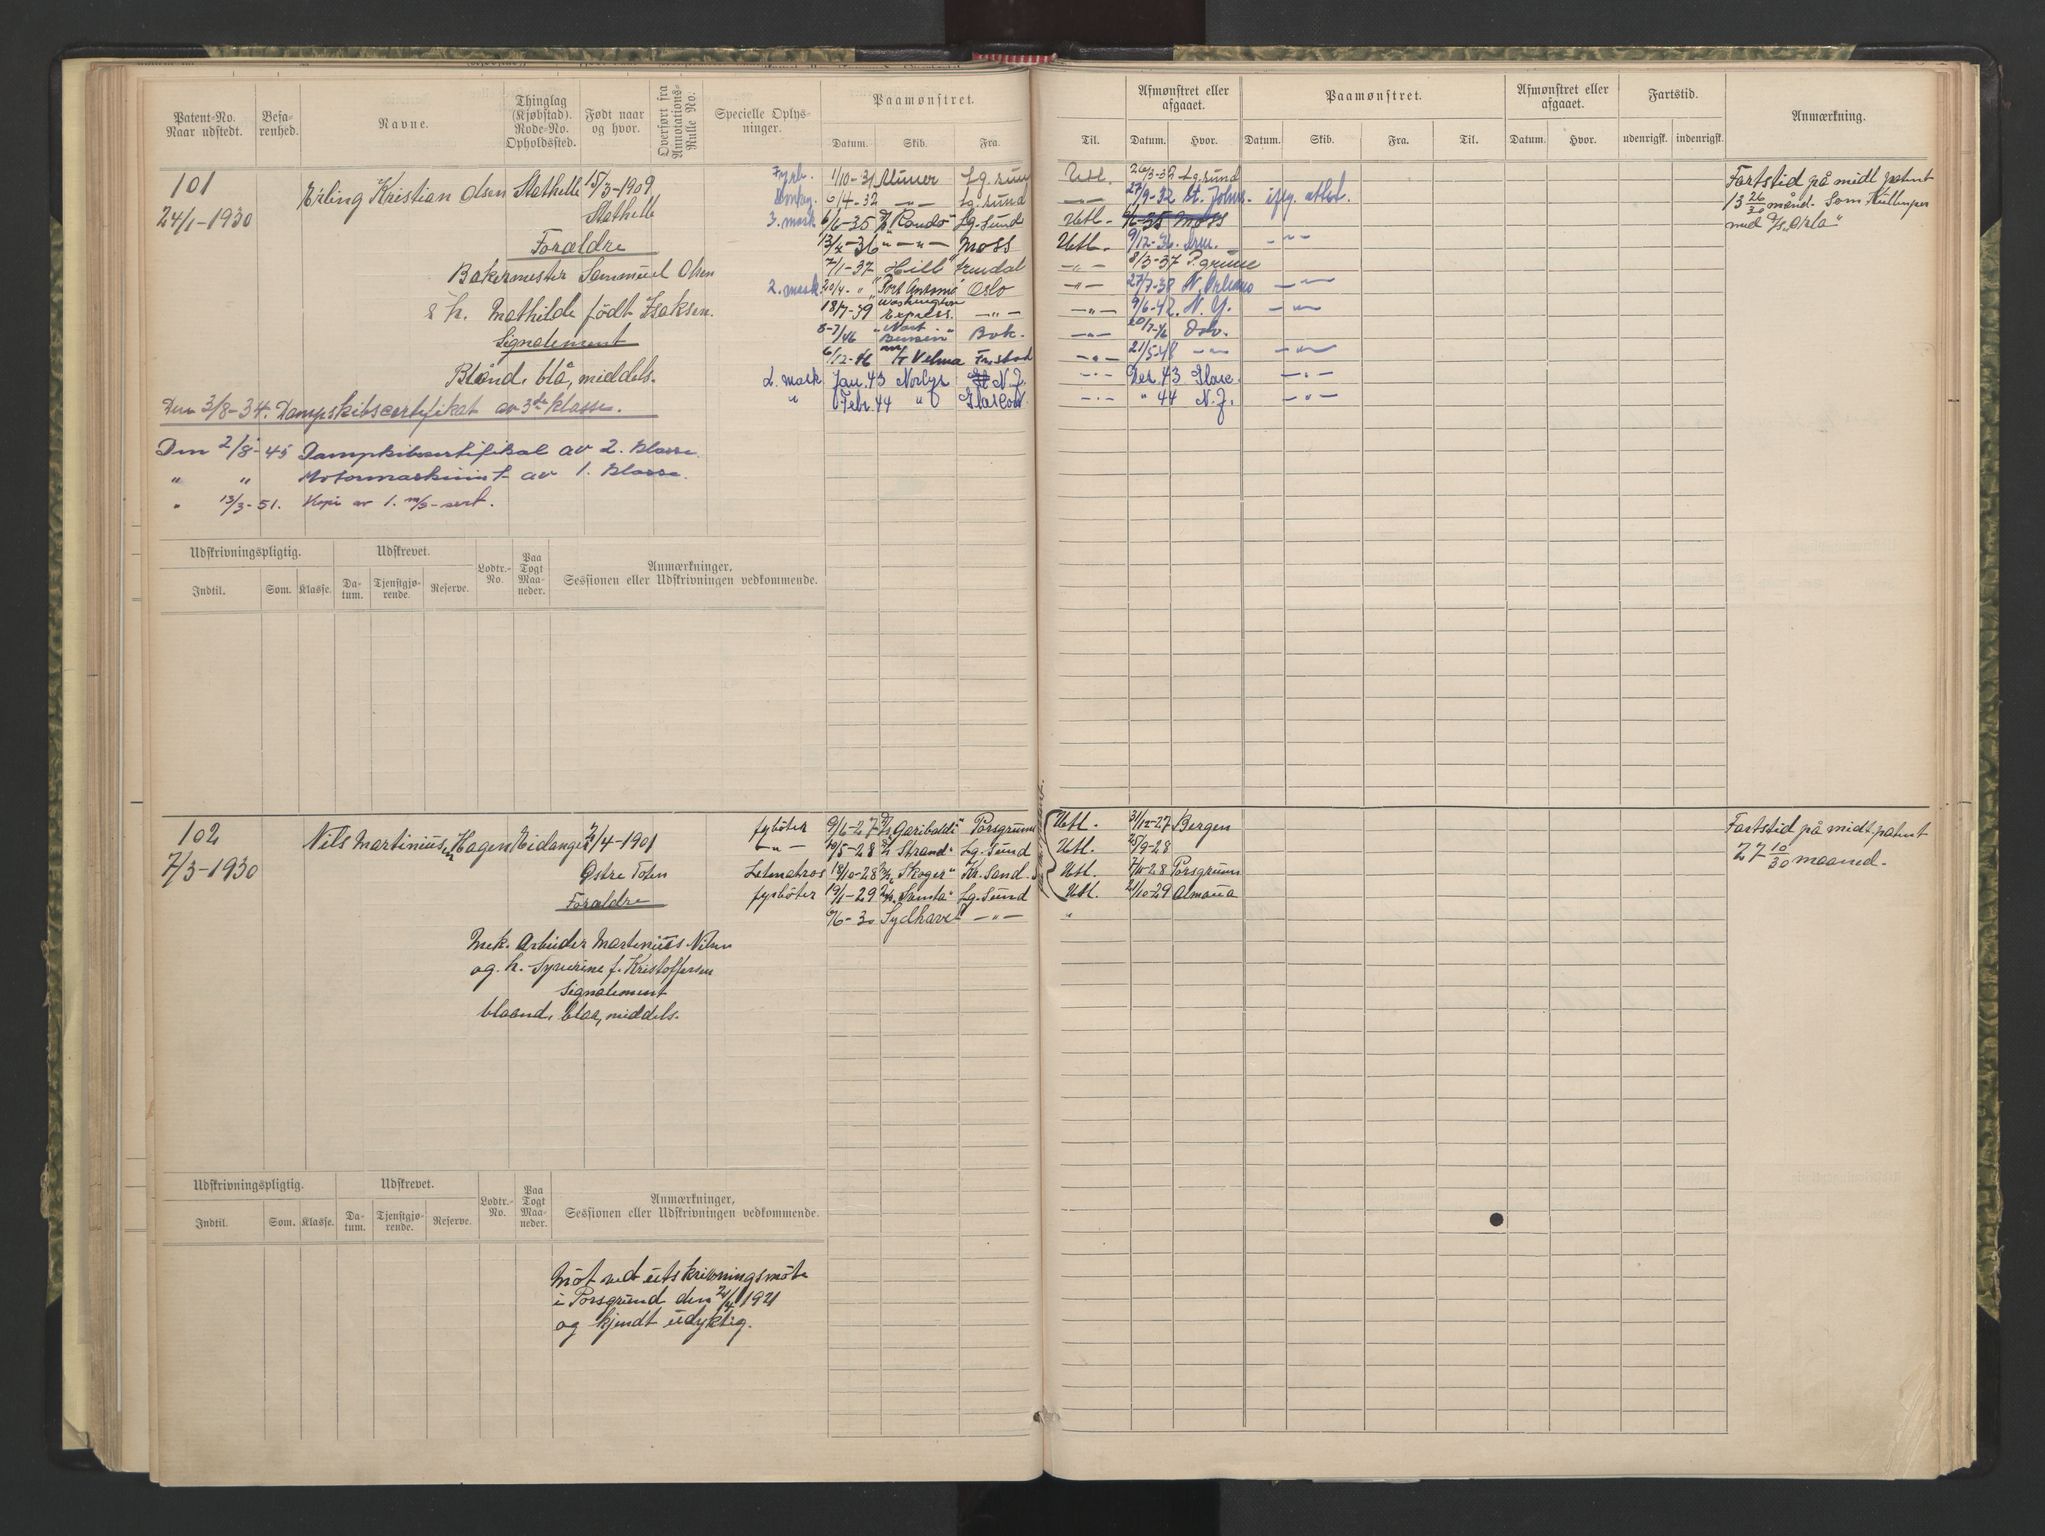 Patent-No. Naar udstedt.
Befarenhed.
Navne.
Thinglag (Kjøbstad). Rode-No. Opholdssted.
Født naar og hvor.
Overført fra Annotations-Rulle No.
Specielle Oplysninger.
Paamønstret.
Datum. Skib. Fra. Til.
Afmønstret eller afgaaet.
Datum. Hvor.
Paamønstret.
Datum. Skib. Fra. Til.
Afmønstret eller afgaaet.
Datum. Hvor.
Fartstid.
udenrigsk. indenrigsk.
Anmærkning.
101
24/1-1930
Erling Kristian Olsen Stathelle 15/3-1909
Stathelle
Foraldre
Bakermester Sammuel Olsen
& h. Mathilde født Isaksen.
Signalement
Blånd, blå, middels.
Den 3/8-34. Dampskibscertifikat av 3die klasse.
Den 2/8-45 Dampskibscertifikat av 2. klasse.
" " Motormaskinist av 1. klasse.
" 13/3-51. Kopi av 1. m/s-sert.
Fyrb. 1/10-31 Lg.sund Utl. 26/3-32 Lg.sund
6/4-32 -"- Lg.sund -"- 27/9-32 St. Johns. iflg. attest.
3. mask 6/6-35 "Rondo" Lg.sund Utl. Moss
13/4-36 " -"- " Moss Utl. 9/12-36. -"-
2/1-37 "Hill" Arendal -"- 8/3-37 P.grunn
2. mask. 20/4- " "Port Antonio" Oslo -"- 27/7-38 N. Orleans -"-
18/7-39 "Washington Express" -"- -"- 9/6-42. N.Y. -"-
5-7/46 Bensin " -"- Oslo.
6/12-46 Velma Fr.stad -"- 21/5-48 -"- -"-
2. mask Jan. 43 Norlys N.J. -"- Des. 43 Glasc. -"-
" Febr. 44 " Glascow -"- " 44 N.J. -"-
Fartstid på midl. patent
13 26/30 månd. Som Kullemper
med D/s "Orla"
Udskrivningspligtig. Udskrevet. Lodtr.-No. Paa Togt Maaneder. Anmærkninger, Sessionen eller Udskrivningen vedkommende.
Indtil. Som. Klasse. Datum. Tjenstgjørende. Reserve.
102
7/3-1930
Nils Martiniusen Hagen Eidanger 2/4-1901
Østre Toten
Foraldre
Mek. Arbeider Martinius Nilsen
og h. Syverine f. Kristoffersen
Signalement
blaand, blaa, middels.
fyrböter 9/6-27 "Garibaldi" Porsgrund Utl. 31/12-27 Bergen
-"- 19/5-28 "Strand" Lg.Sund Utl. 25/9-28
Letmatros 18/10-28 "Skoger" Kr.Sand.S Utl. Porsgrunn
fyrböter 19/1-29 "Samla" Lg.Sund Utl. 21/10-29
9/6-30 Sydhavet -"- "
Fartstid på midt. patent
27 10/30 maaned.
Udskrivningspligtig. Udskrevet. Lodtr.-No. Paa Togt Maaneder. Anmærkninger, Sessionen eller Udskrivningen vedkommende.
Indtil. Som. Klasse. Datum. Tjenstgjørende. Reserve.
Møt ved utskrivningsmøte
i Porsgrund den 21/4 1921
og kjendt udyktig.